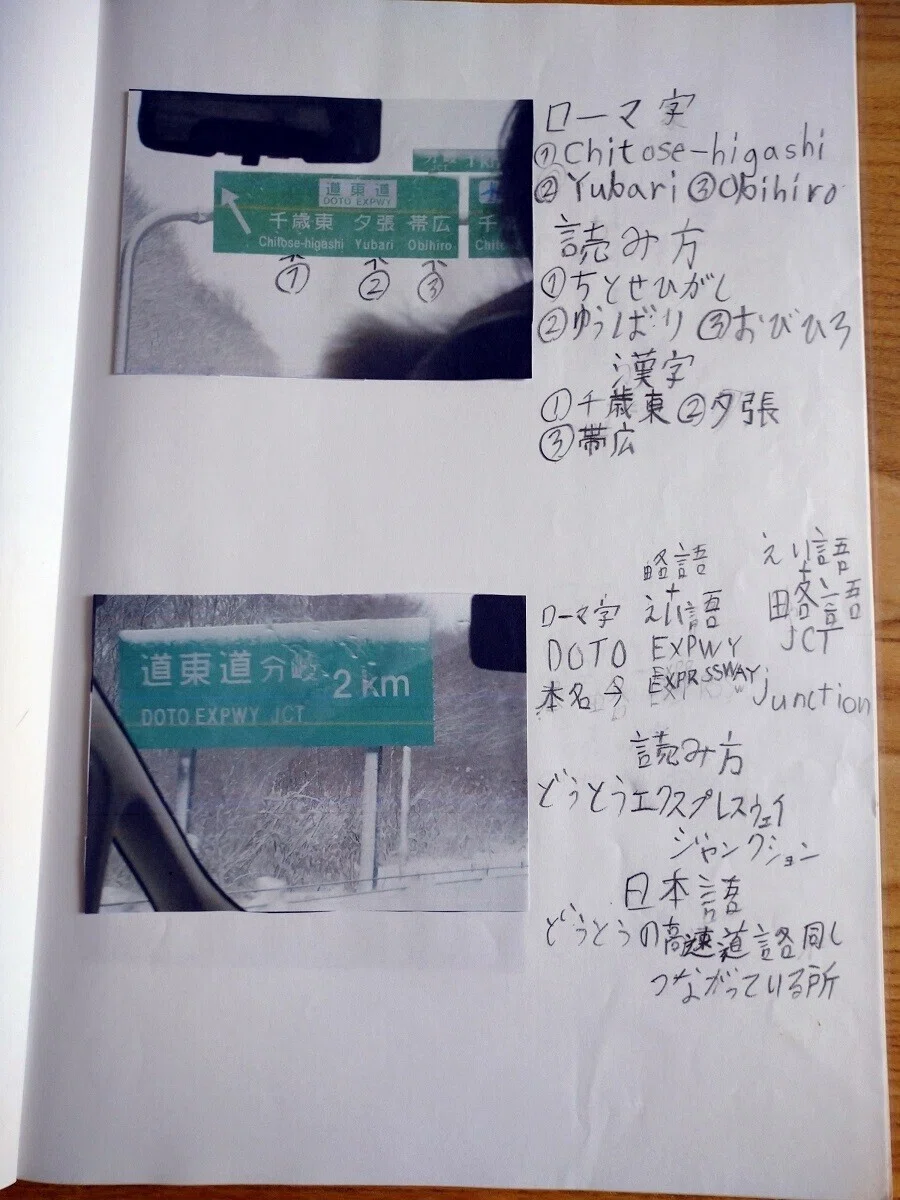 道東道
DOTO EXPWY
千歳東 夕張 帯広
Chitose-higashi Yubari Obihiro
千
Chito
① ② ③
ローマ字
①Chitose-higashi
②Yubari ③Obihiro
読み方
①ちとせひがし
②ゆうばり ③おびひろ
漢字
①千歳東 ②夕張
③帯広
道東道分岐 2 km
DOTO EXPWY JCT
略語 えい語
+ +
ローマ字 えい語 略語
DOTO EXPWY JCT
本名→ EXPRSSWAY junction
読み方
どうとうエクスプレスウェイ
ジャンクション
日本語
どうとうの高速道路同し
つながっている所